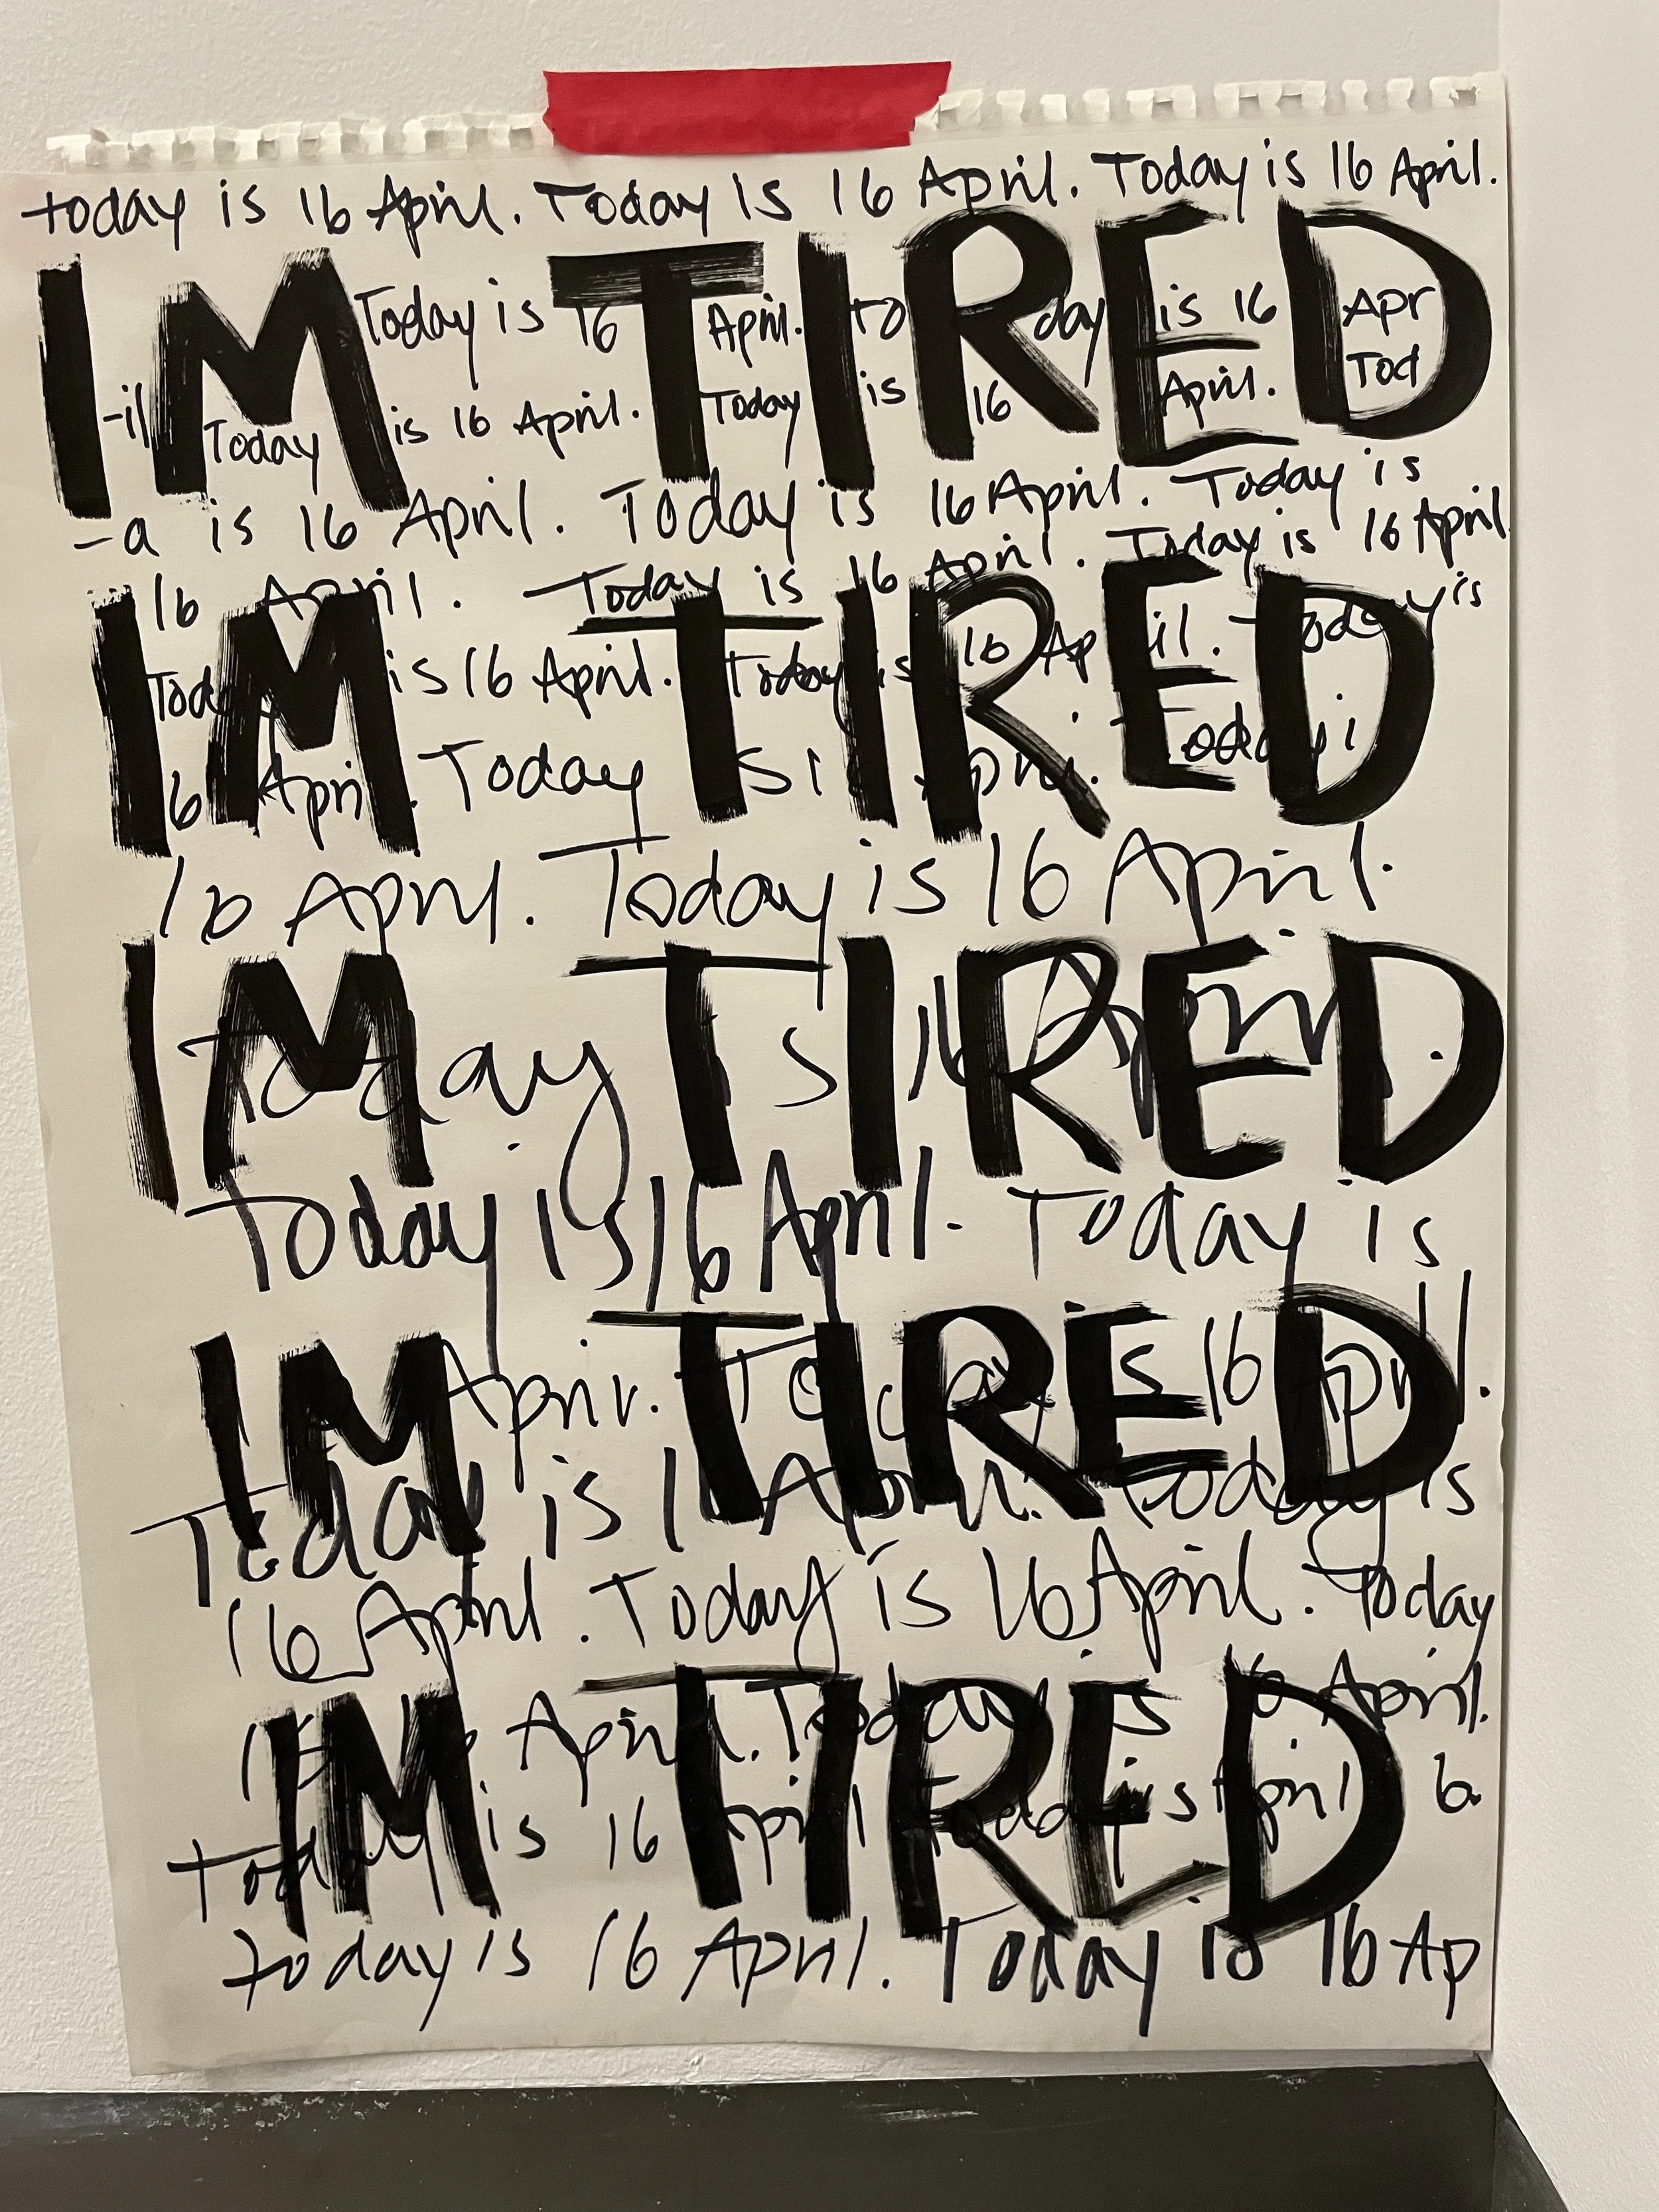 today is 16 April. Today is 16 April. Today is 16 April.
IM TIRED
Today is 16 April. to day is 16 Apr
-il Today is 16 April. Today is 16 April. Tod
-a is 16 April. Today is 16 April. Today is
16 April. Today is 16 April. Today is 16 April
IM TIRED
Today is 16 April. Today is 16 April. Today is
16 April. Today i
16 April. Today is 16 April.
IM TIRED
today is 16 April.
Today is 16 April. Today is
IM TIRED
April. Today is 16 April.
Today is 16 April. Today is
16 April. Today is 16 April. Today
IM TIRED
April. Today is 16 April.
Today is 16 April Today is April
today is 16 April. Today is 16 Ap